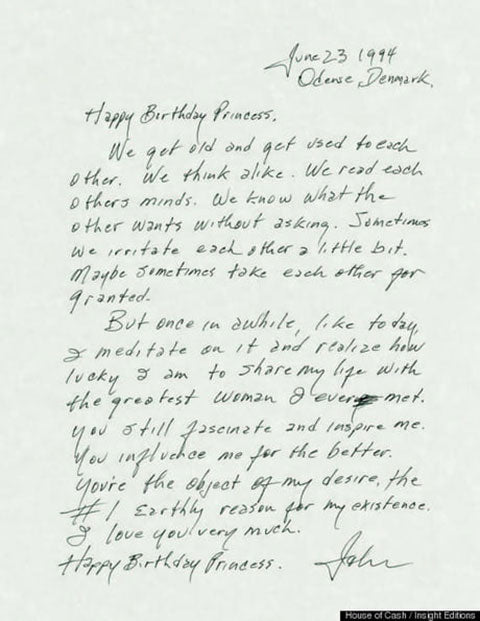 June 23 1994
Odense, Denmark.
Happy Birthday Princess,
We get old and get used to each
other. We think alike. We read each
others minds. We know what the
other wants without asking. Sometimes
we irritate each other a little bit.
Maybe sometimes take each other for
granted.
But once in awhile, like today,
I meditate on it and realize how
lucky I am to share my life with
the greatest woman I ever met.
You still fascinate and inspire me.
You influence me for the better.
You're the object of my desire, the
#1 Earthly reason for my existence.
I love you very much.
Happy Birthday Princess. John
House of Cash / Insight Editions